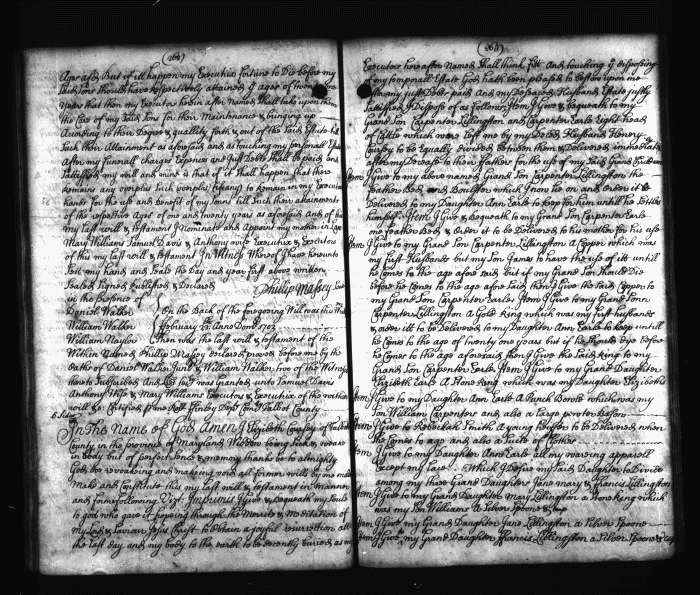 (262)
Age after But if ill happen my Executrix fortune to Die before my
Said Sons Should have respectively attained y ages of twenty one
Years that then my Executor herein after Named Shall take upon them
the Care of my Said Sons for their Maintenance & bringing up
According to their Degree & quallity forth & out of the Said Estate till
Such their Attainment as aforesaid and as touching my personall Estate
After my funerall charges Expences and Just Debts Shall be paid and
Sattisfied my will and mind is that if it Shall happen that there
remains any overplus Such overplus to Remain in my Executrix
hands for the use and benefit of my Sonns till Such their attainment
of the respective Ages of one and twenty years as aforesaid and of this
my last will & testament I Nominate and Appoint my mother in Law
Mary Williams Samuel Davis & Anthony wise Executrix & Executors
of this my last will & testament In Witness Whereof I have hereunto
Sett my hand and Seale the Day and year first above written
Sealed Signed published & Declared Phillip Massey
in the presence of
Daniel Walker On the Back of the Foregoing Will was this
William Walker February 22 Anno Dom 1703
William Naylor Then was the last will & testament of the
Within Named Phillip Massey declared & proved before me by the
Oaths of Daniel Walker Junr & William Walker two of the
thereto Subscribed And was granted unto Samuel Davis
Anthony Wise & Mary Williams Executors & Executrix of the within
will &c Certified Comry Talbot County
In The Name of God Amen I Elizabeth Coursey of Talbott
County in the province of Maryland Widdow being Sick & weake
in body but of perfect Sence & memory thanks be to almighty
God doe revoaking and making void all former wills by me made
Make and Constitute this my last will & testament in Manner
and forme following Vizt. Imprimis I Give & bequeath my Soule
to god who gave it hopeing through the Merits & Meditation of
my Lord & Saviour Jesus Christ to obtain a joyful resurrection att
the last day and my body to the earth to be decently buried as my
(263)
Executors hereafter Named Shall think fitt And touching y disposeing
of my temporall Estate God hath been pleased to bestow upon me
after my Just Debts paid And my Deceased Husbands Estate Justly
Sattisfied I Dispose of as followes Item I Give & bequeath to my
Grand Son Carpenter Lillington and Carpenter Earle Eight head
of Cattle which were left me by my Deced Husband Henry
Coursey to be Equally divided between them & Delivered immediately
after my Decease to their Father for the use of my Said Grand Children
Item I Give to my above named Grand Son Carpenter Lillington the
feather Bed and Boulster which I now lie on and order it be
Delivered to my Daughter Ann Earle to keep for him untill he Settles
himself. Item I Give & bequeath to my Grand Son Carpenter Earle
one feather Bed & order it to be Delivered to his mother for his use
Item I Give to my Grand Son Carpenter Lillington A Copper which was
my first Husbands but my Son James to have the use of itt untill
he Comes to the age afore said but if my Grand Son Should Die
before he Comes to the age afore said then I Give the Said Copper to
my Grand Son Carpenter Earle Item I Give to my Grand Sonn
Carpenter Lillington A Gold Ring which was my first husbands
& order itt to be Delivered to my Daughter Ann Earle to keep untill
he Comes to the age of twenty one years but if he Should Die before
he Comes to the age aforesaid then I Give the Said Ring to my
Grand Son Carpenter Earle Item I Give to my Grand Daughter
Elizabeth Earle A Stone Ring which was my Daughter Elizabeths
Item I Give to my Daughter Ann Earle A Punch Bowle which was my
Son William Carpenters and also a large pewter Bason
Item I Give to Rebeckah Smith A young heiffer to be Delivered when
She Comes to age and also a Suite of Cloths
Item I Give to my Daughter Ann Earle all my wearing apparell
Except my lace Which I Desire my Said Daughter to Divide
among my three Grand Daughters Jane mary & francis Lillington
Item I Give to my Grand Daughter Mary Lillington a Stone Ring which
was my Son Williams A Silver Spoone & cup
Item I Give my Grand Daughter Jane Lillington a Silver Spoone
Item I Give my Grand Daughter Francis Lillington a Silver Spoone & cup